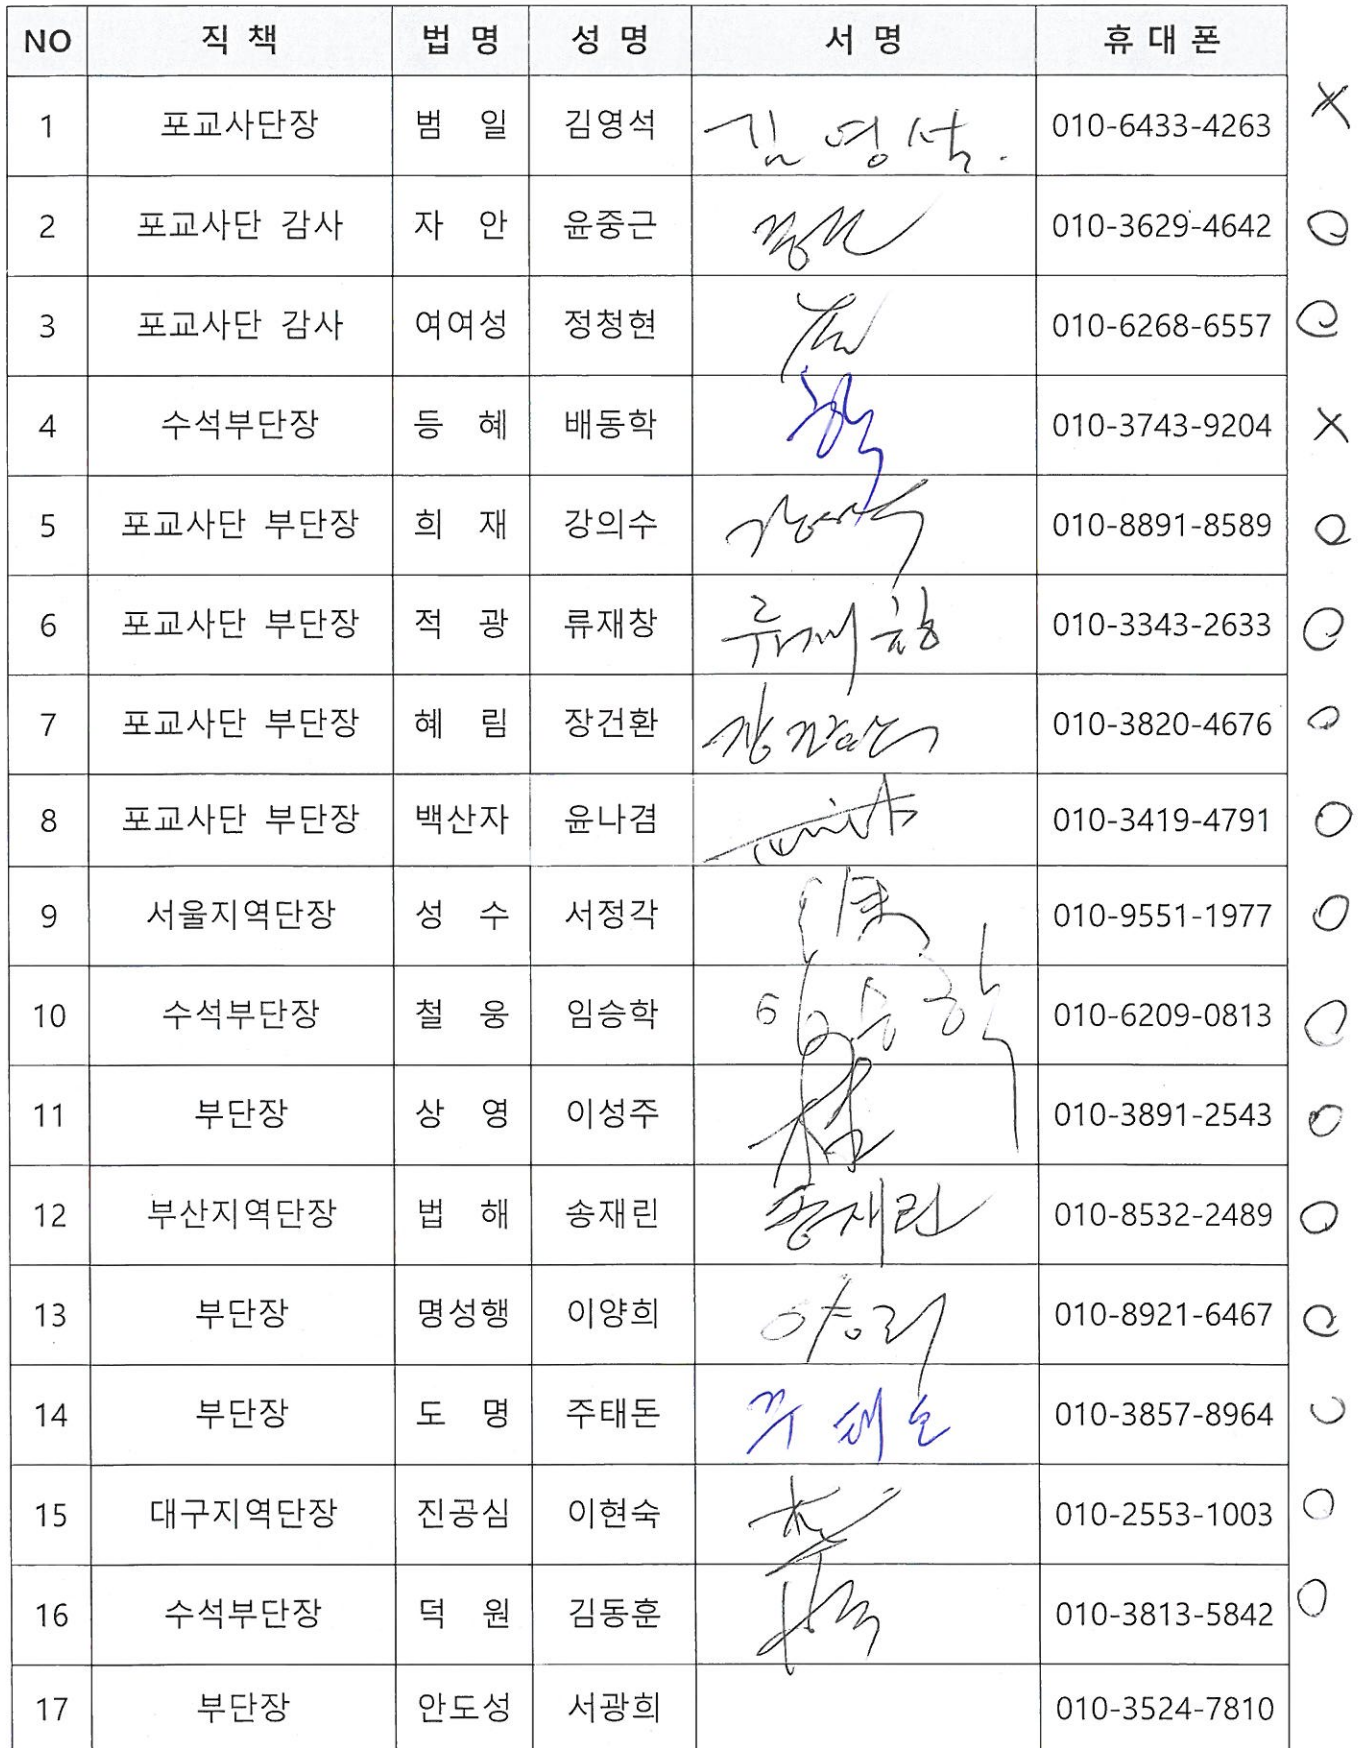 NO 직 책 법 명 성 명 서 명 휴 대 폰
1 포교사단장 범 일 김영석 김 영 석. 010-6433-4263 X
2 포교사단 감사 자 안 윤중근 010-3629-4642 O
3 포교사단 감사 여여성 정청현 010-6268-6557 O
4 수석부단장 등 혜 배동학 010-3743-9204 X
5 포교사단 부단장 희 재 강의수 강의수 010-8891-8589 O
6 포교사단 부단장 적 광 류재창 류재창 010-3343-2633 O
7 포교사단 부단장 혜 림 장건환 장건환 010-3820-4676 O
8 포교사단 부단장 백산자 윤나겸 010-3419-4791 O
9 서울지역단장 성 수 서정각 010-9551-1977 O
10 수석부단장 철 웅 임승학 임승학 010-6209-0813 O
11 부단장 상 영 이성주 010-3891-2543 O
12 부산지역단장 법 해 송재린 송재린 010-8532-2489 O
13 부단장 명성행 이양희 010-8921-6467 O
14 부단장 도 명 주태돈 주태돈 010-3857-8964 O
15 대구지역단장 진공심 이현숙 010-2553-1003 O
16 수석부단장 덕 원 김동훈 010-3813-5842 O
17 부단장 안도성 서광희 010-3524-7810